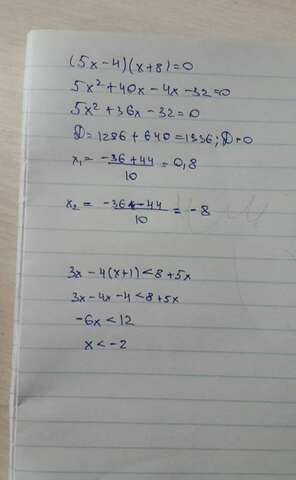 (5x-4)(x+8)=0
5x²+40x-4x-32=0
5x²+36x-32=0
D=1286+640=1336; D>0
x₁= (-36+44)/10 =0,8
x₂= (-36-44)/10 = -8
3x-4(x+1)<8+5x
3x-4x-4<8+5x
-6x<12
x<-2